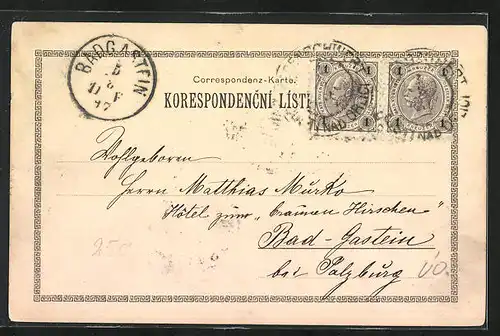 BADGASTEIN
Correspondenz-Karte.
KORESPONDENČNÍ LÍST
1 1 1 1
NAD
NAD
Wohlgeboren
Herrn Matthias Murko
Hôtel zum „Braunen Hirschen“
Bad-Gastein
bei Salzburg